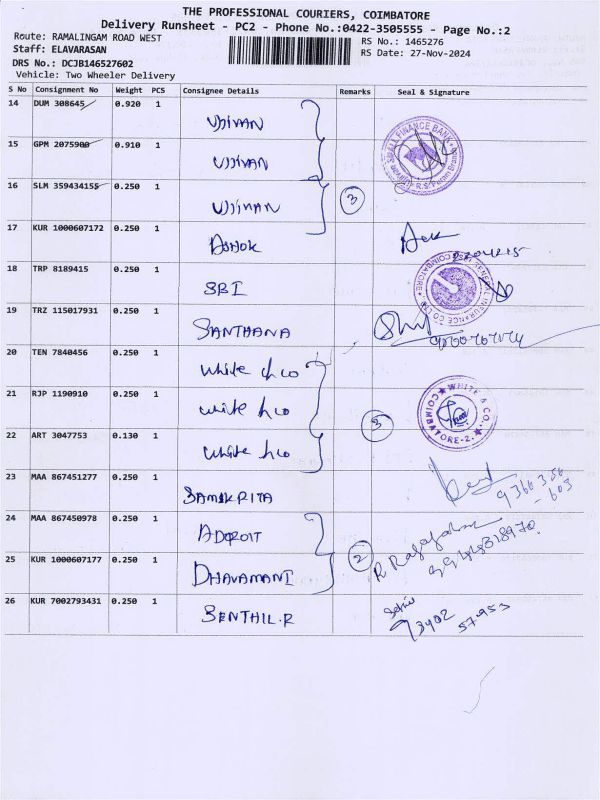 THE PROFESSIONAL COURIERS, COIMBATORE
Delivery Runsheet - PC2 - Phone No.:0422-3505555 - Page No.:2
Route: RAMALINGAM ROAD WEST
RS No.: 1465276
Staff: ELAVARASAN
RS Date: 27-Nov-2024
DRS No.: DCJB146527602
Vehicle: Two Wheeler Delivery
S No Consignment No Weight PCS Consignee Details Remarks Seal & Signature
14 DUM 308645 0.920 1 UJJIVAN
15 GPM 2075900 0.910 1 UJJIVAN
16 SLM 359434155 0.250 1 UJJIVAN 3
SMALL FINANCE BANK
17 KUR 1000607172 0.250 1 ASHOK
18 TRP 8189415 0.250 1 SBI
19 TRZ 115017931 0.250 1 SANTHANA
20 TEN 7840456 0.250 1 White & co
21 RJP 1190910 0.250 1 White & co 3
22 ART 3047753 0.130 1 White & co
WHITE & CO.
COIMBATORE-2.
23 MAA 867451277 0.250 1 SAMSKRITA
9366356
-603
24 MAA 867450978 0.250 1 ADROIT
25 KUR 1000607177 0.250 1 DHAVAMANI 2
26 KUR 7002793431 0.250 1 SENTHIL.R
73402
57953